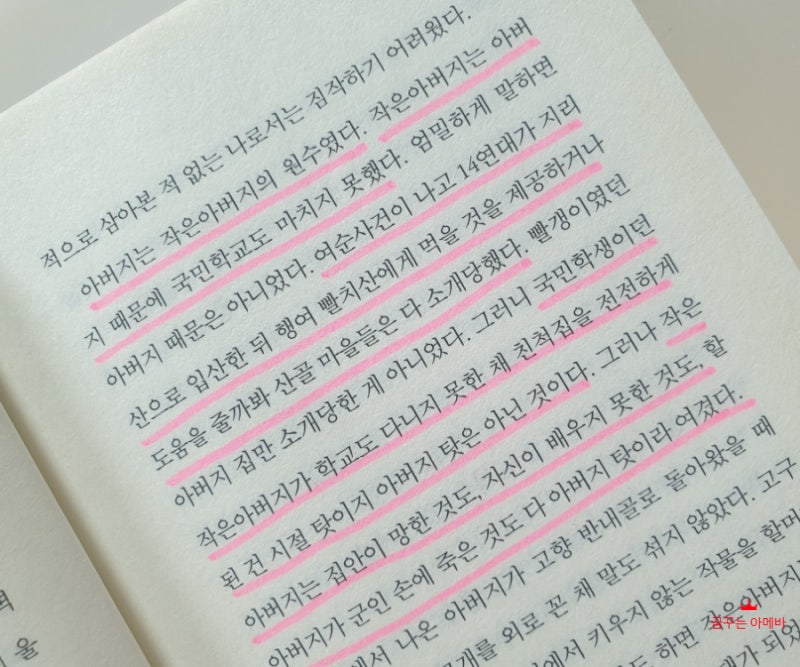 적으로 삼아본 적 없는 나로서는 짐작하기 어려웠다.
아버지는 작은아버지의 원수였다. 작은아버지는 아버
지 때문에 국민학교도 마치지 못했다. 엄밀하게 말하면
아버지 때문은 아니었다. 여순사건이 나고 14연대가 지리
산으로 입산한 뒤 행여 빨치산에게 먹을 것을 제공하거나
도움을 줄까봐 산골 마을들은 다 소개당했다. 빨갱이였던
아버지 집만 소개당한 게 아니었다. 그러니 국민학생이던
작은아버지가 학교도 다니지 못한 채 친척집을 전전하게
된 건 시절 탓이지 아버지 탓은 아닌 것이다. 그러나 작은
아버지는 집안이 망한 것도, 자신이 배우지 못한 것도, 할
아버지가 군인 손에 죽은 것도 다 아버지 탓이라 여겼다.
나온 아버지가 고향 반내골로 돌아왔을 때
외로 꼰 채 말도 섞지 않았다. 고구
에서 키우지 않는 작물을 할머
도 하면 작은아버지
을
꿈꾸는 아메바